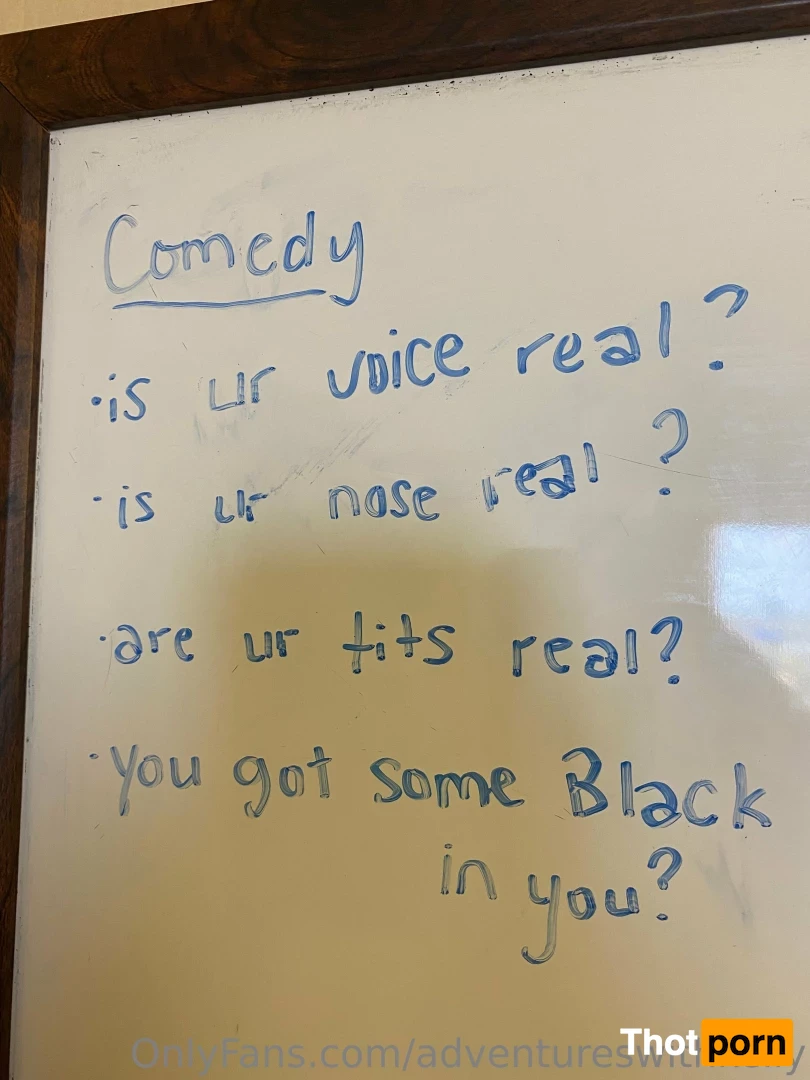 Comedy
·is ur voice real?
·is ur nose real?
·are ur tits real?
·you got some Black
in you?
Thot porn
OnlyFans.com/adventureswith